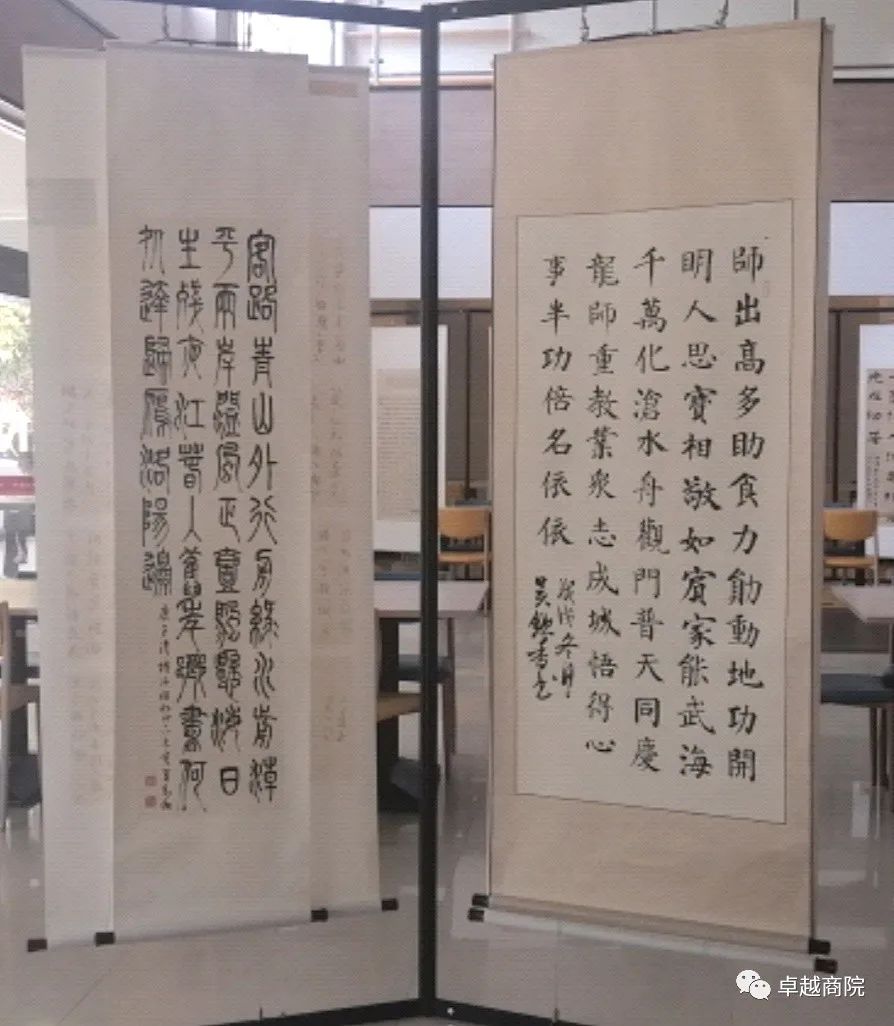 師出高多助食力勛動地功開
明人思寶相敬如賓家能武海
千萬化滄水舟觀門普天同慶
龍師重教業衆志成城悟得心
事半功倍名依依
戊戌冬月
客路青山外行舟綠水前潮
平兩岸闊風正壹帆懸海日
生殘夜江春入舊年鄉書何
処達歸雁洛陽邊
卓越商院